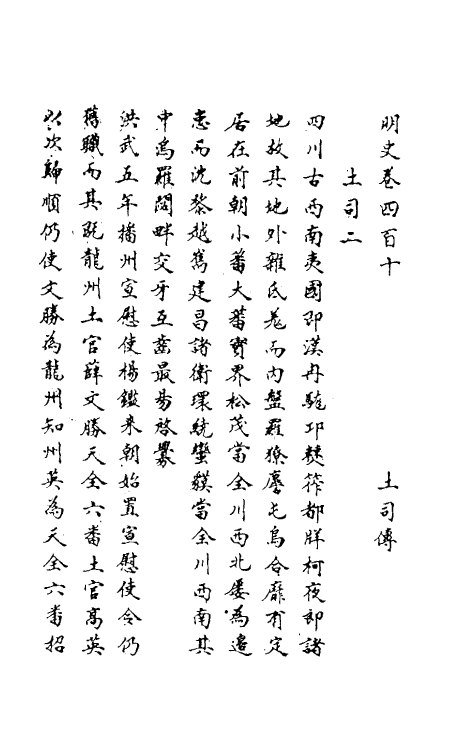 明史卷四百十 土司傳
土司二
四川古西南夷國即漢冉駹邛僰筰都牂柯夜郎諸
地故其地外雜氐羌而內盤羅獠麼乇烏合靡有定
居在前朝小蕃大蕃實界松茂當全川西北屢為邊
患而沈黎越嶲建昌諸衛環統蠻貘當全川西南其
中烏羅閣畔交牙互錯最易啓釁
洪武五年播州宣慰使楊鑑來朝始置宣慰使令仍
舊職而其酋龍州土官薛文勝天全六番土官高英
以次歸順仍使文勝為龍州知州英為天全六番招